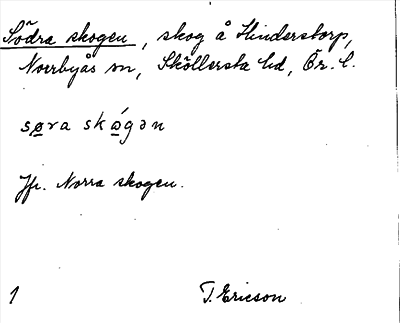 Södra skogen, skog å Hinderstorp,
Norrbyås sn, Sköllersta hd, Ör. l.
søra skógən
Jfr. Norra skogen.
1 T. Ericson